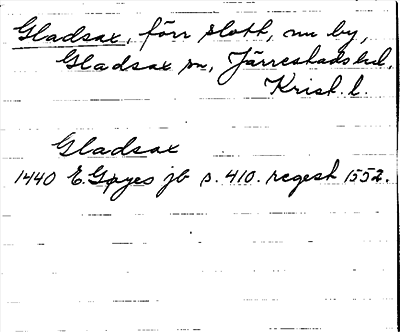 Gladsax, förr slott, nu by,
Gladsax sn, Järrestads hd,
Krist. l.
Gladsax
1440 E. Gøyes jb s. 410. regest 1552.